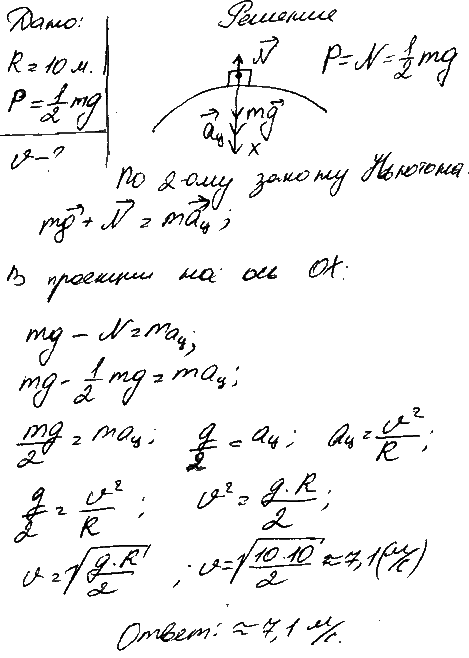 Дано:
R = 10 м.
P = 1/2 mg
v - ?
Решение
N⃗
mg⃗
a⃗ц
x
P = N = 1/2 mg
По 2-ому закону Ньютона.
mg⃗ + N⃗ = ma⃗ц;
В проекции на ось OX:
mg - N = maц;
mg - 1/2 mg = maц;
mg/2 = maц; g/2 = aц; aц = v²/R;
g/2 = v²/R; v² = g·R/2;
v = √(g·R/2); v = √(10·10/2) ≈ 7,1 (м/с)
Ответ: ≈ 7,1 м/с.